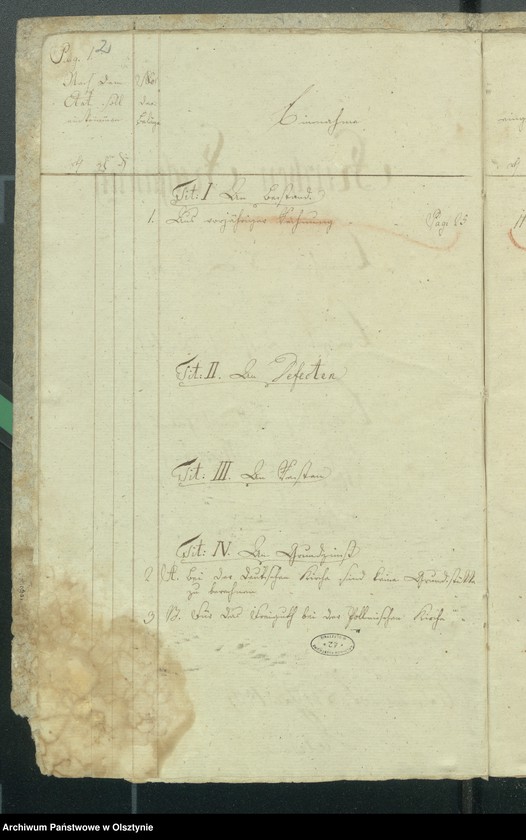 Pag. 12
Nach dem
Etat soll
einkommen
No
der
Beläge
Einnahme
Tit: I An Bestand.
1. Aus vorjähriger Rechnung Pag. 65
Tit: II. An Defecten
Tit: III. An Resten
Tit: IV. An Grundzinß
2 A. bei der Deutschen Kirche sind keine Grundstücke
zu berechnen
3 B. Für das bei der Pollnischen Kirche
Archiwum Państwowe w Olsztynie